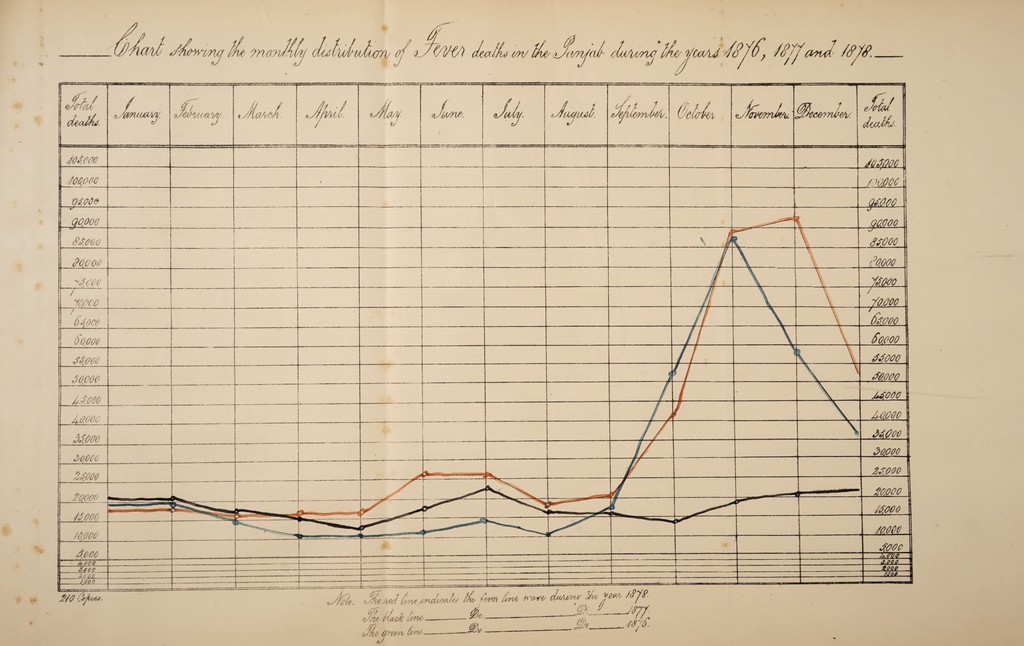 Chart showing the monthly distribution of Fever deaths in the Punjab during the years 1876, 1877 and 1878.
Total deaths. January. February. March. April. May. June. July. August. September. October November. December. Total deaths.
105,000 105,000
100,000 100,000
95,000 95,000
90,000 90,000
85,000 85,000
80,000 80,000
75,000 75,000
70,000 70,000
65,000 65,000
60,000 60,000
55,000 55,000
50,000 50,000
45,000 45,000
40,000 40,000
35,000 35,000
30,000 30,000
25,000 25,000
20,000 20,000
15,000 15,000
10,000 10,000
5,000 5,000
4,000 4,000
3,000 3,000
2,000 2,000
1,000 1,000
210 Copies.
Note. The red line indicates the fever line wave during the year 1878.
The black line Do Do 1877.
The green line Do Do 1876.